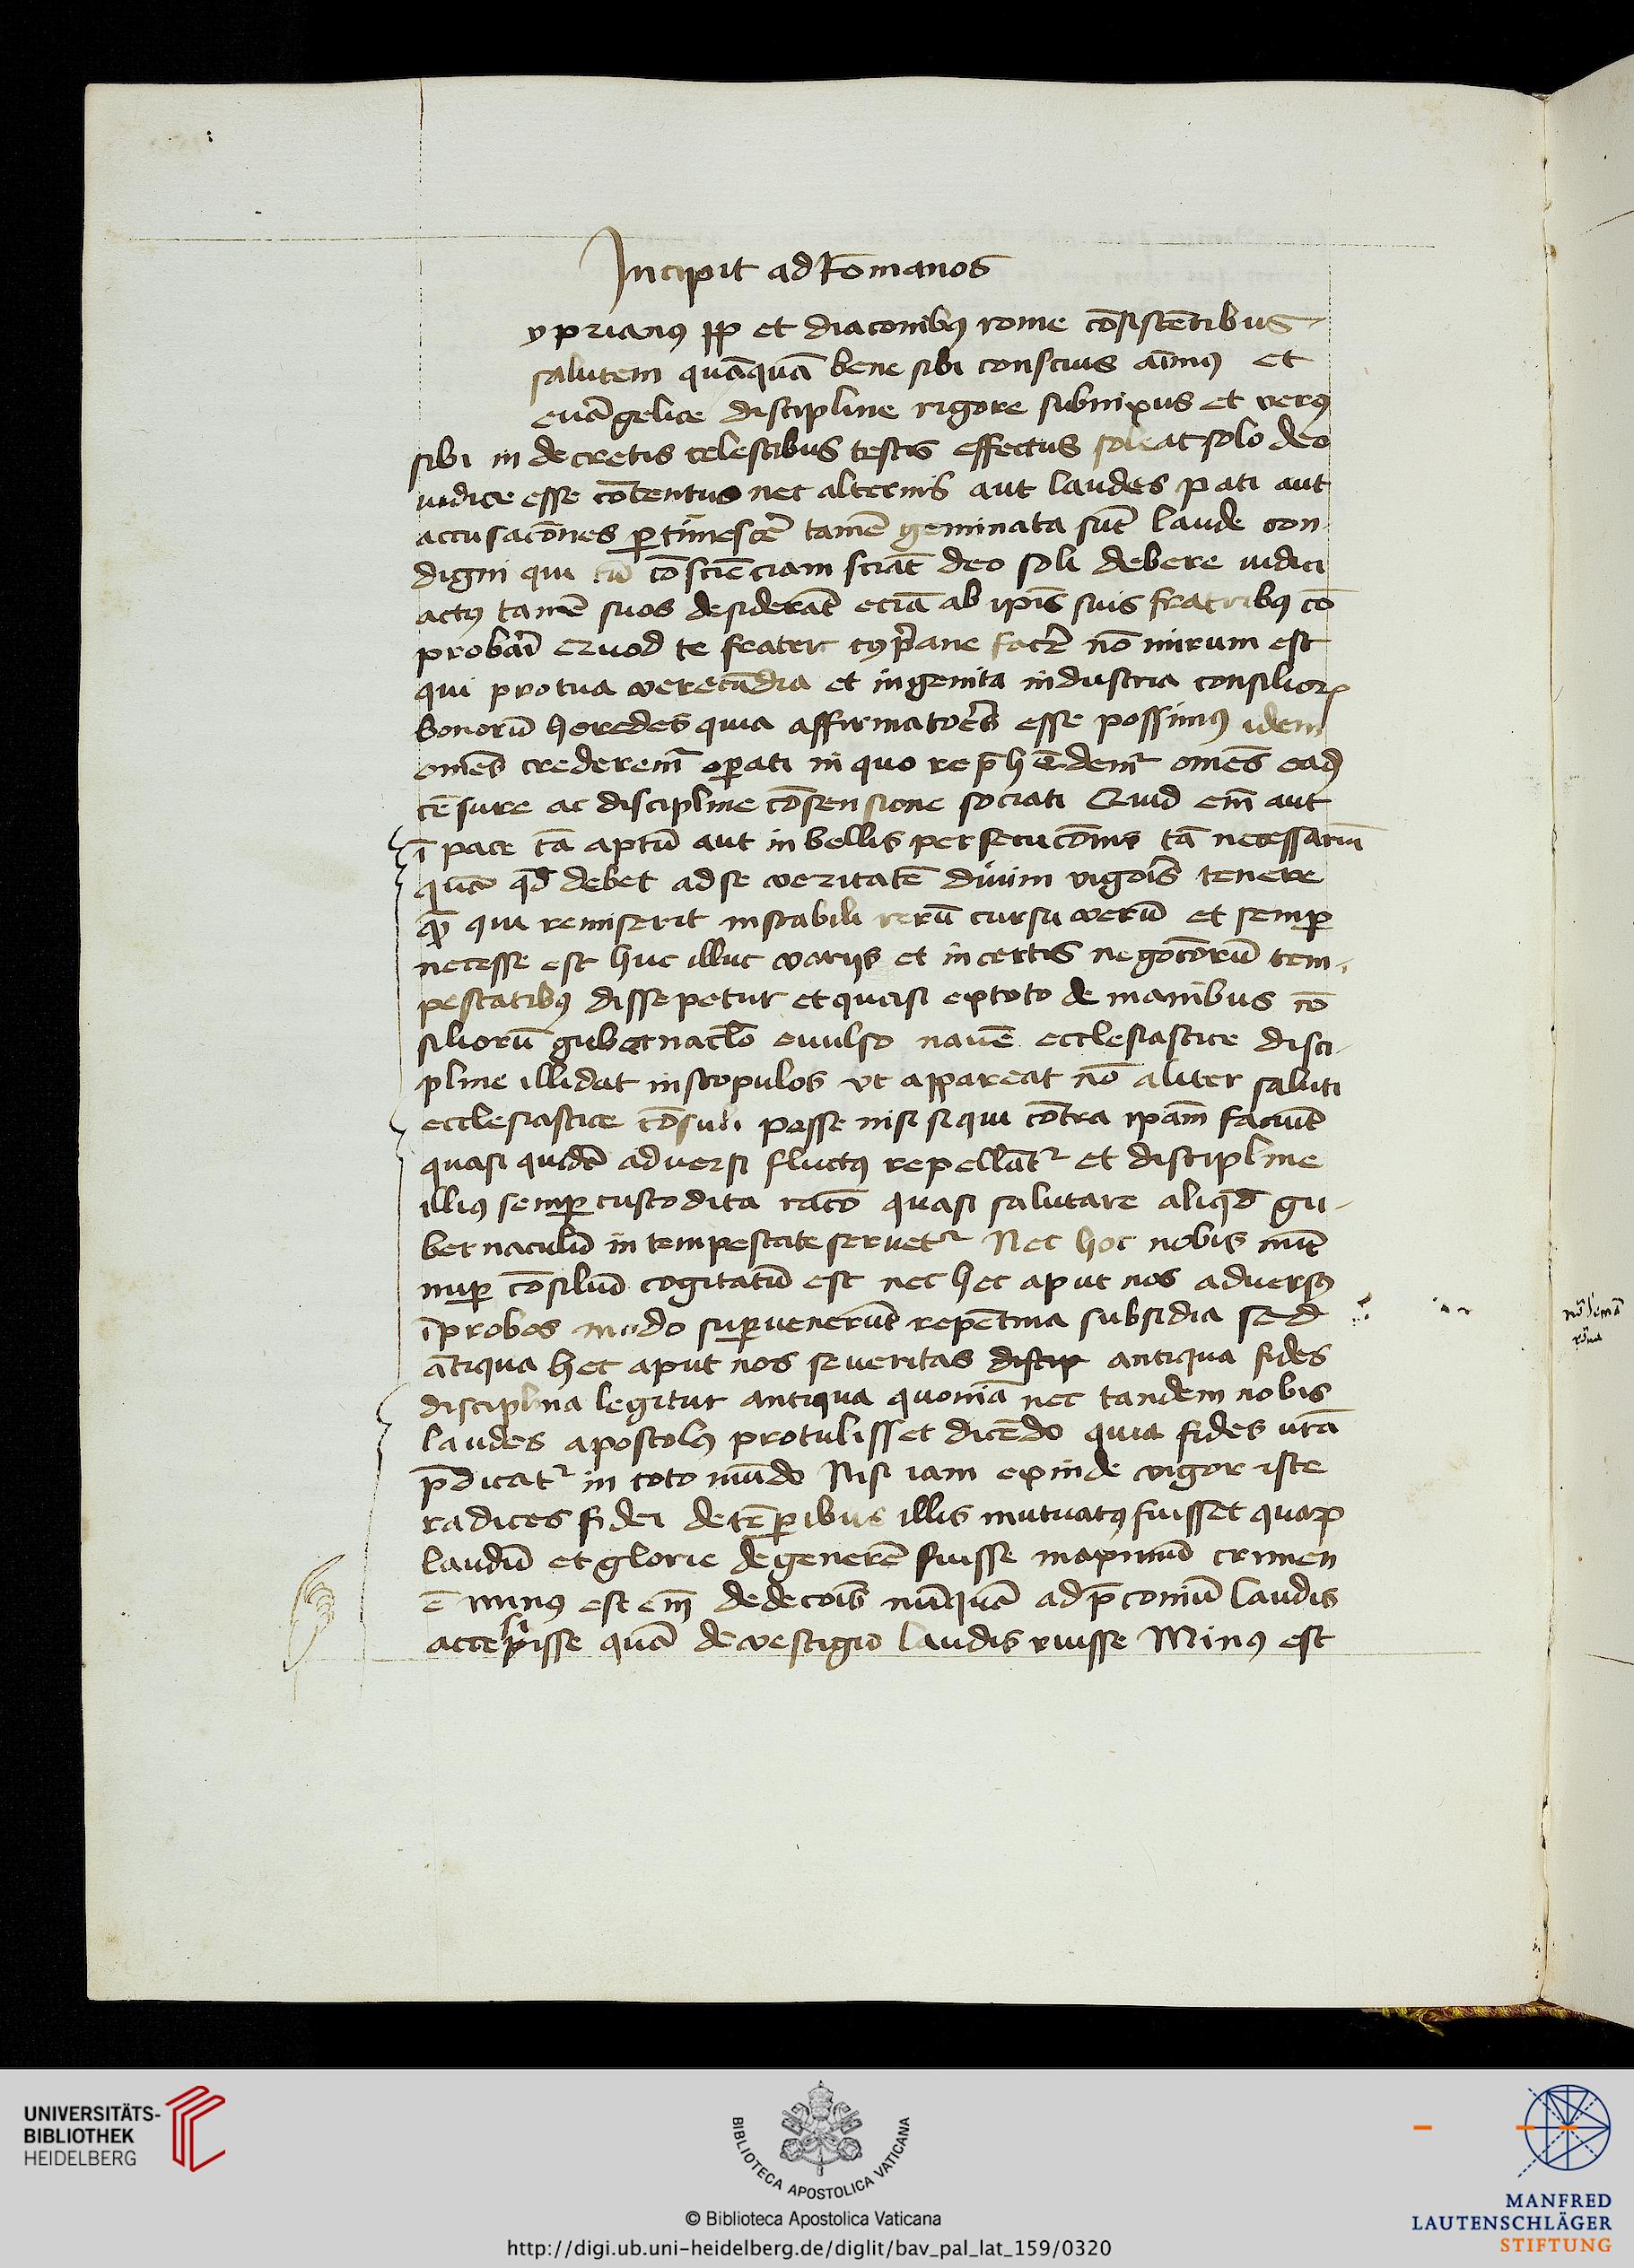 Incipit ad Romanos
yprianꝰ pp̄ et diaconibꝰ rome cōsistētibus
salutem quāquā bene sibi conscius aīmꝰ et
euāgelice discipline rigore subnixus et verꝰ
sibi in decretis celestibus testis effectus soleat solo deo
iudice esse cōtentus nec alternis aut laudes pati aut
accusacōnes ꝑtimescē tamē geminata sūt laude con
digni qui cū cōsciēciam sciāt deo soli debere iudici
actꝰ tamē suos desiderāt eciā ab ip̄is suis fratribꝰ cō
probari Quod te frater cyp̄ane facē nō mirum est
qui pro tua verecūdia et ingenita industria consilioꝝ
bonorū heredes quia affirmatoēs esse possimꝰ idem
om̄es crederemꝰ oꝑati in quo rep̄hēdemꝰ om̄es eadē
cēsure ac discipline cōsensione sociati Quid em̄ aut
ī pace tā aptū aut in bellis persecucōnis tā necessariū
quā qd̄ debet ad se veritatē diuini vigoīs tenere
qā qui remiserit instabili rerū cursu verū et semꝑ
necesse est huc illuc varijs et incertis negocōrū tem
pestatibꝰ dissepetur et quasi extoto de manibus cō
siliorū gubernaclo euulso nauē ecclesiastice disci
pline illidat in scopulos vt appareat nō aliter saluti
ecclesiastice cōsuli posse nisi si qui cōtra ip̄am faciūt
quasi quidē aduersi fluctꝰ repellātᷣ et discipline
illiꝰ semꝑ custodita racō quasi salutare aliqd̄ gu
bernaculū in tempestate seruetᷣ Nec hoc nobis nūc
nuꝑ cōsiliū cogitatū est nec hec aput nos aduersꝰ
īprobos modo suꝑuenerūt repētina subsidia sed
ātiqua hec aput nos seueritas discip antiqua fides
disciplina legitur antiqua quoniā nec tandem nobis
laudes apostolꝰ protulisset dicēdo quia fides vr̄a
p̄dicatᷣ in toto mūdo Nisi iam exinde vigor iste
radices fidei de tēꝑibus illis mutuatꝰ fuisset quaꝝ
laudū et glorie degenerē fuisse maximū crimen
ē minꝰ est em̄ dedecoīs nūquā ad p̄coniū laudis
accepisse quā de vestigio laudis ruisse Minꝰ est
UNIVERSITÄTS-
BIBLIOTHEK
HEIDELBERG
BIBLIOTECA APOSTOLICA VATICANA
© Biblioteca Apostolica Vaticana
http://digi.ub.uni-heidelberg.de/diglit/bav_pal_lat_159/0320
MANFRED
LAUTENSCHLÄGER
STIFTUNG